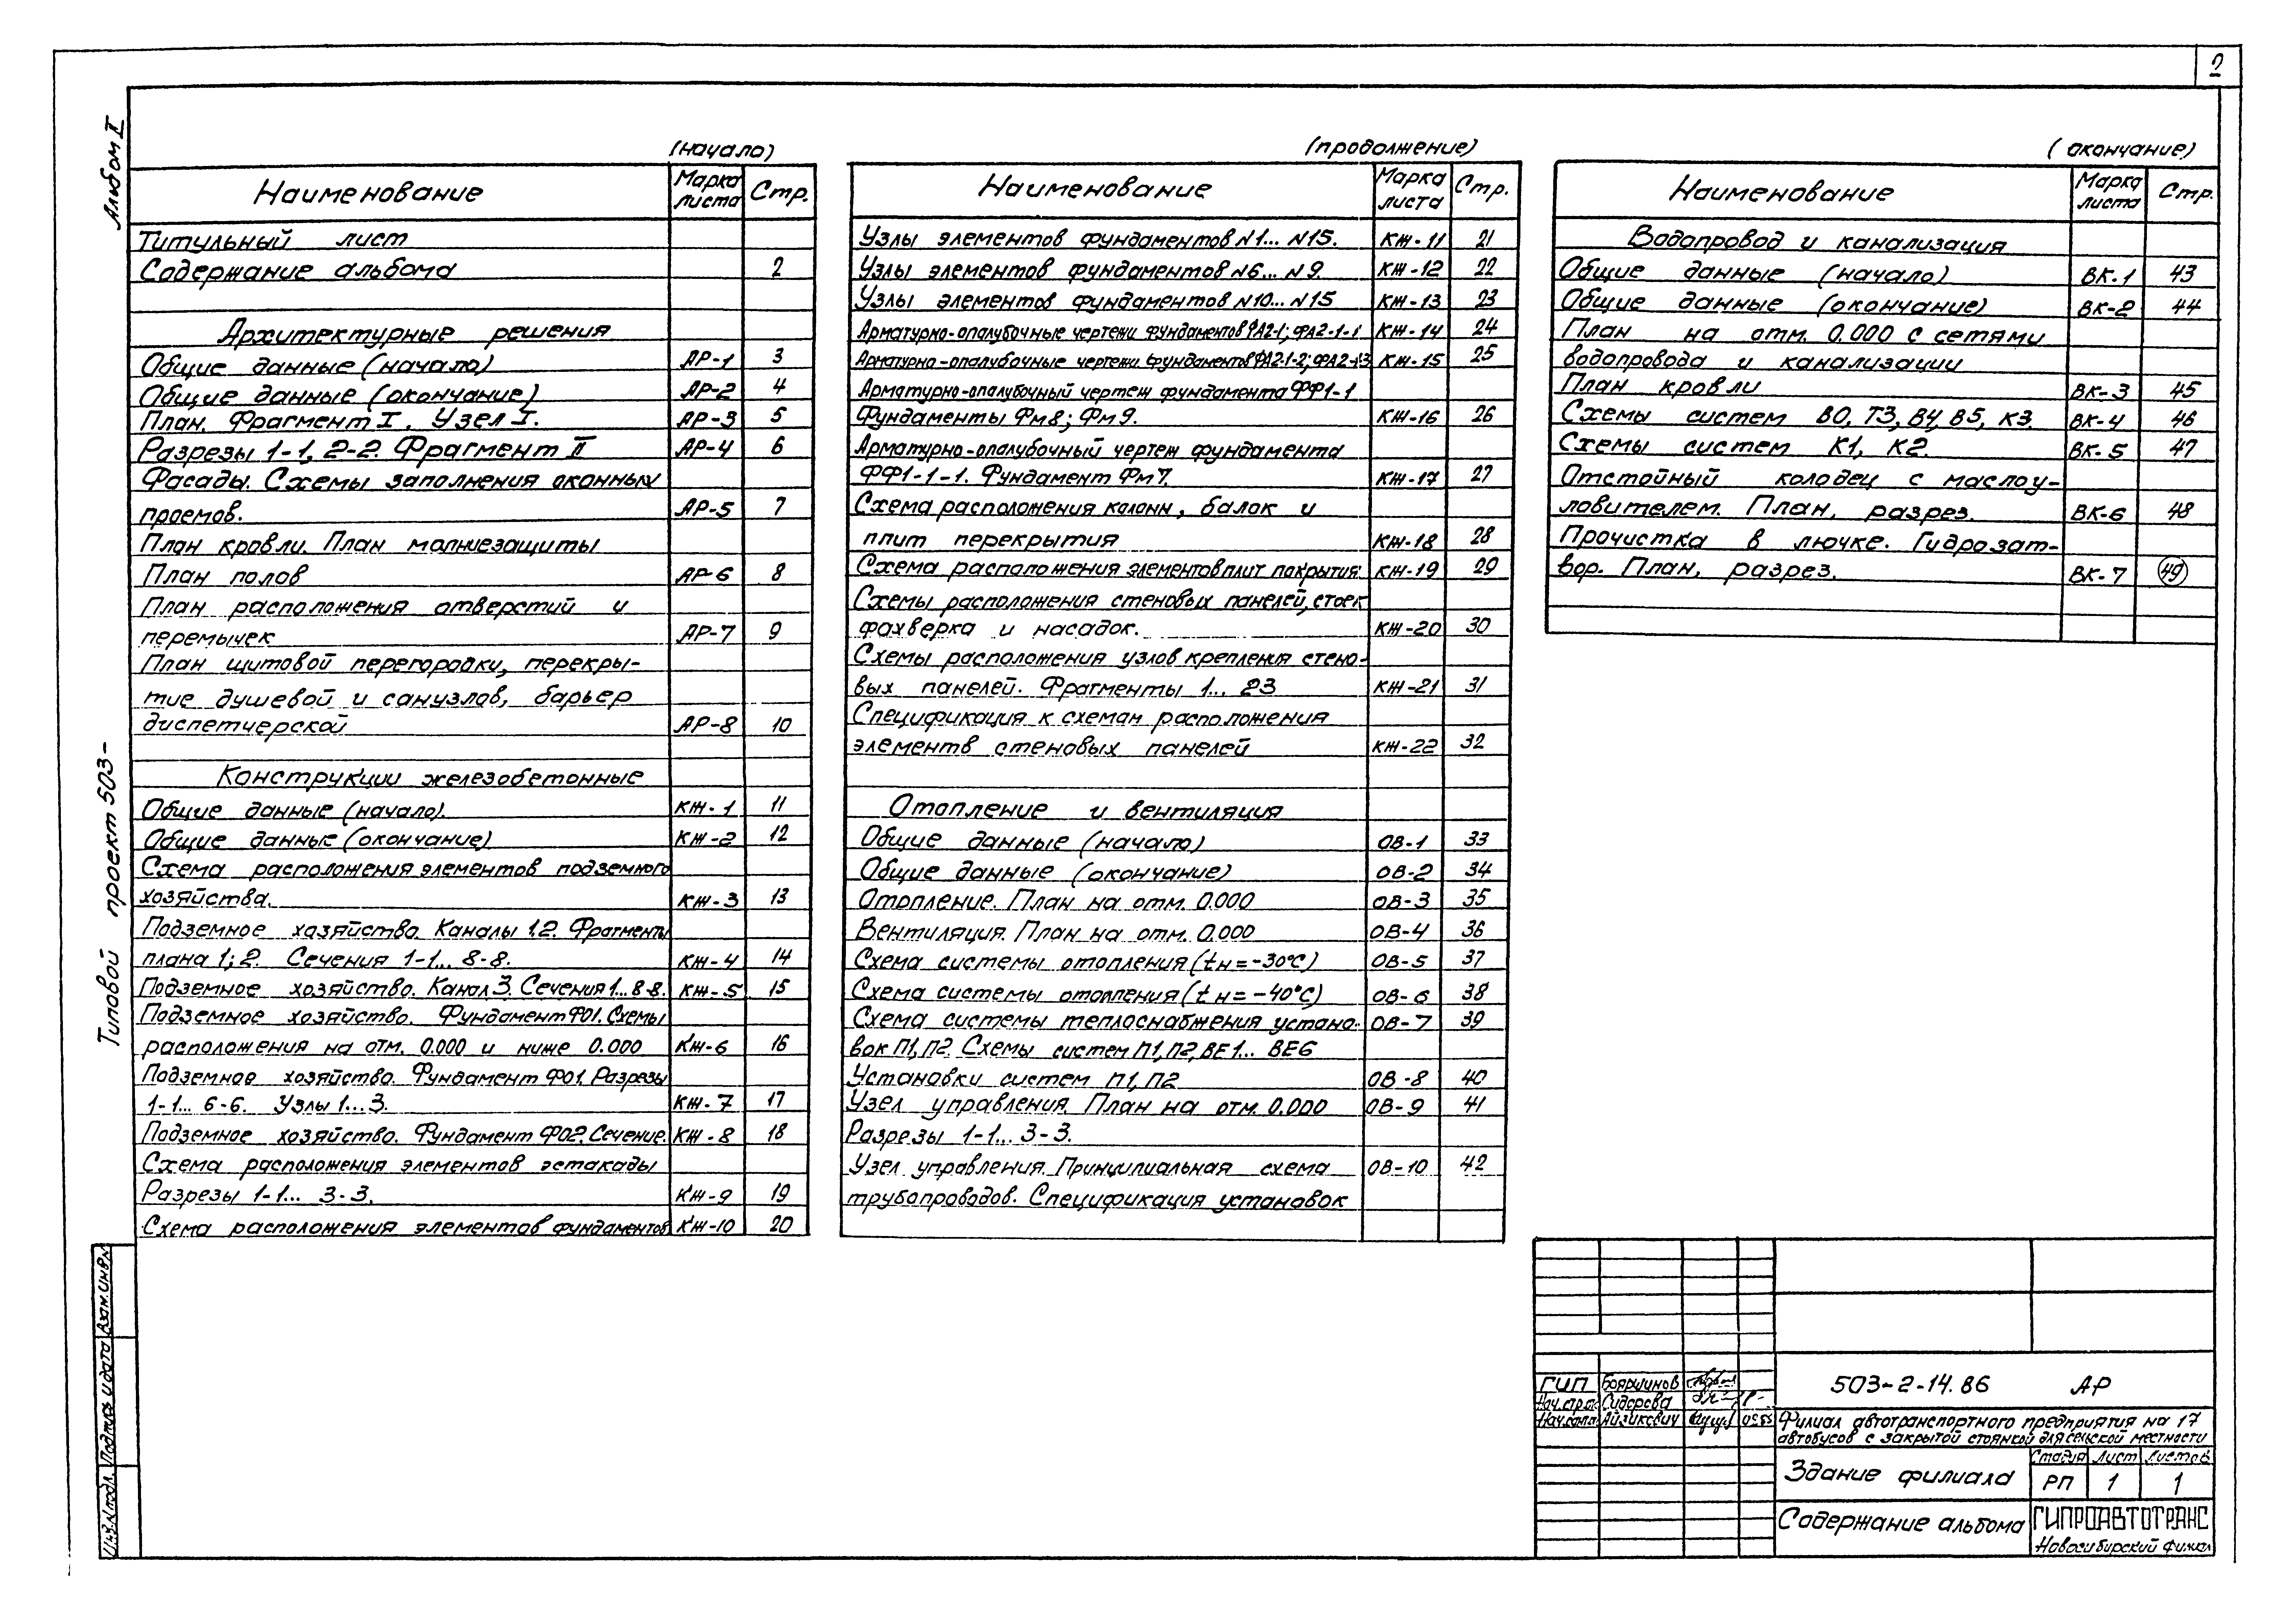 2
Альбом II
Типовой проект 503-
(начало)
Наименование Марка листа Стр.
Титульный лист
Содержание альбома 2
Архитектурные решения
Общие данные (начало) АР-1 3
Общие данные (окончание) АР-2 4
План. Фрагмент I. Узел I. АР-3 5
Разрезы 1-1, 2-2. Фрагмент II АР-4 6
Фасады. Схемы заполнения оконных
проемов. АР-5 7
План кровли. План молниезащиты
План полов АР-6 8
План расположения отверстий и
перемычек АР-7 9
План щитовой перегородки, перекры-
тие душевой и санузлов, барьер
диспетчерской АР-8 10
Конструкции железобетонные
Общие данные (начало). КЖ-1 11
Общие данные (окончание) КЖ-2 12
Схема расположения элементов подземного
хозяйства. КЖ-3 13
Подземное хозяйство. Каналы 1.2. Фрагменты
плана 1; 2. Сечения 1-1... 8-8. КЖ-4 14
Подземное хозяйство. Канал 3. Сечения 1...8-8. КЖ-5 15
Подземное хозяйство. Фундамент Ф01. Схемы
расположения на отм. 0.000 и ниже 0.000 КЖ-6 16
Подземное хозяйство. Фундамент Ф01. Разрезы
1-1... 6-6. Узлы 1...3. КЖ-7 17
Подземное хозяйство. Фундамент Ф02. Сечение. КЖ-8 18
Схема расположения элементов эстакады
Разрезы 1-1... 3-3. КЖ-9 19
Схема расположения элементов фундаментов КЖ-10 20
(продолжение)
Наименование Марка листа Стр.
Узлы элементов фундаментов N1... N15. КЖ-11 21
Узлы элементов фундаментов N6... N9. КЖ-12 22
Узлы элементов фундаментов N10... N15 КЖ-13 23
Арматурно-опалубочные чертежи фундаментов ФА2-1; ФА2-1-1 КЖ-14 24
Арматурно-опалубочные чертежи фундаментов ФА2-1-2; ФА2-1-3 КЖ-15 25
Арматурно-опалубочный чертеж фундамента ФФ1-1
Фундаменты Фм8; Фм9. КЖ-16 26
Арматурно-опалубочный чертеж фундамента
ФФ1-1-1. Фундамент Фм7. КЖ-17 27
Схема расположения колонн, балок и
плит перекрытия КЖ-18 28
Схема расположения элементов плит покрытия. КЖ-19 29
Схемы расположения стеновых панелей, стоек
фахверка и насадок. КЖ-20 30
Схемы расположения узлов крепления стено-
вых панелей. Фрагменты 1... 23 КЖ-21 31
Спецификация к схемам расположения
элементв стеновых панелей КЖ-22 32
Отопление и вентиляция
Общие данные (начало) ОВ-1 33
Общие данные (окончание) ОВ-2 34
Отопление. План на отм. 0.000 ОВ-3 35
Вентиляция. План на отм. 0.000 ОВ-4 36
Схема системы отопления (tн=-30°С) ОВ-5 37
Схема системы отопления (tн=-40°С) ОВ-6 38
Схема системы теплоснабжения устано- ОВ-7 39
вок П1, П2. Схемы систем П1, П2, ВЕ1... ВЕ6
Установки систем П1, П2 ОВ-8 40
Узел управления. План на отм. 0.000 ОВ-9 41
Разрезы 1-1... 3-3.
Узел управления. Принципиальная схема ОВ-10 42
трубопроводов. Спецификация установок
(окончание)
Наименование Марка листа Стр.
Водопровод и канализация
Общие данные (начало) ВК-1 43
Общие данные (окончание) ВК-2 44
План на отм. 0.000 с сетями
водопровода и канализации
План кровли ВК-3 45
Схемы систем В0, Т3, В4, В5, К3. ВК-4 46
Схемы систем К1, К2. ВК-5 47
Отстойный колодец с маслоу-
ловителем. План, разрез. ВК-6 48
Прочистка в лючке. Гидрозат-
вор. План, разрез. ВК-7 49
ГИП Бояршинов
Нач.стр.отд Сидорова
Айзикович
503-2-14.86 АР
Филиал автотранспортного предприятия на 17
автобусов с закрытой стоянкой для сельской местности
Здание филиала
Стадия Лист Листов
РП 1 1
Содержание альбома
ГИПРОАВТОТРАНС
Новосибирский филиал
Инв.N подл. Подпись и дата Взам.инв.N